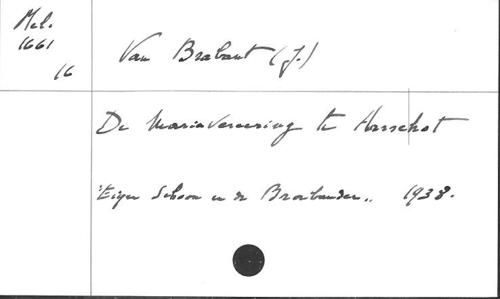 Mél.
1661
16
Van Brabant (J.)
De Mariavereering te Aarschot
"Eigen Schoon en de Brabander„ 1938.